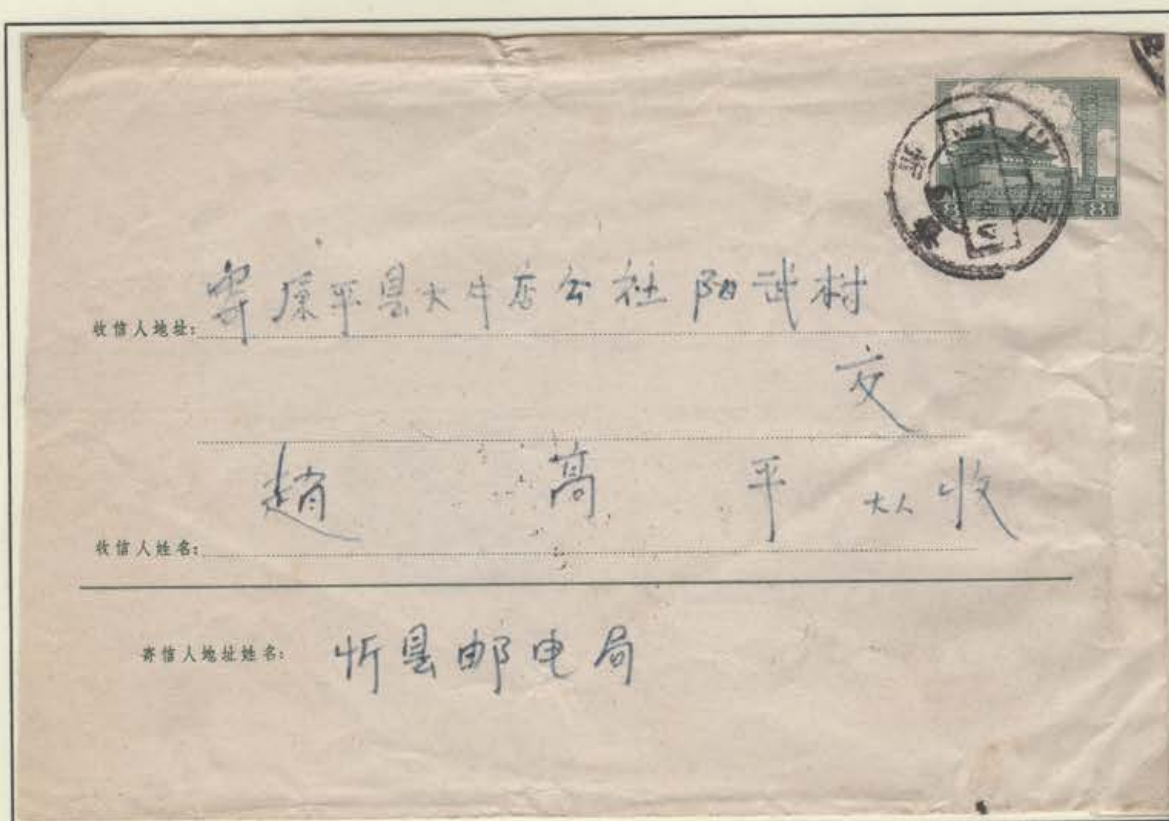 8
8
收信人地址: 寄 原平县大牛店公社 阳武村
交
收信人姓名: 趙 高 平 大人 收
寄信人地址姓名: 忻县邮电局